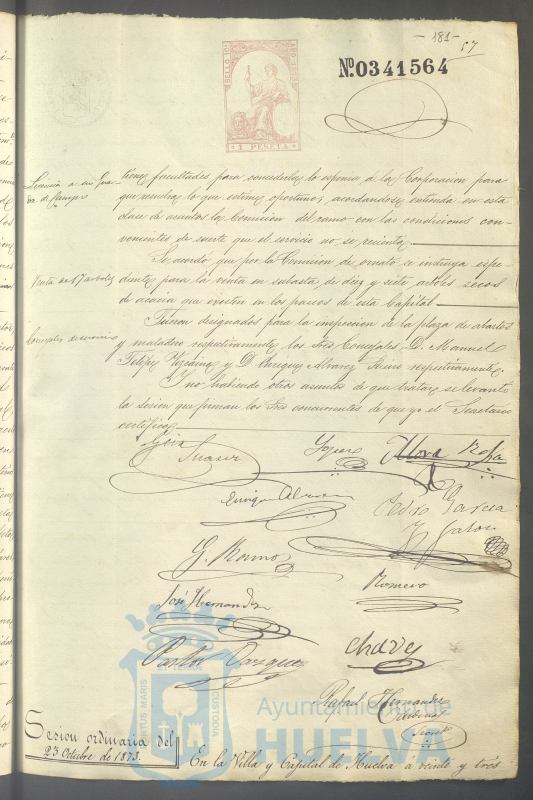 - 181 -
57
SELLO 10º
AÑO 1875
1 PESETA
Nº 0341564
Licencia á un Guarda de Campo
tiene facultades para concederla lo espone á la Corporacion para
que resuelva lo que estime oportuno; acordandose entienda en esta
clase de asuntos la Comision del ramo con las condiciones con-
venientes de suerte que el servicio no se resienta.
Venta de 17 arboles
Se acordó que por la Comision de ornato se instruya espe-
diente para la venta en subasta de diez y siete arboles secos
de acacia que existen en los paseos de esta Capital
Fueron designados para la inspeccion de la plaza de abastos
y matadero respectivamente los Sres Concejales D. Manuel
Felipe Vizcaino y D. Enrique Alvarez Suero respectivamente.
Y no habiendo otros asuntos de que tratar, se levantó
la sesion que firman los Sres concurrentes de que yo el Secretario
certifico
Suarez
Lopez
Mora
Rofa
Enrique Alvarez
Pedro Garcia
G. Ramos
José Hernandez
Romero
Carlos Vazquez
Chavez
Rafael Hernandez
PORTUS MARIS
CUSTODIA
Ayuntamiento de
HUELVA
Sesion ordinaria del
23 Octubre de 1875.
En la Villa y Capital de Huelva á veinte y tres